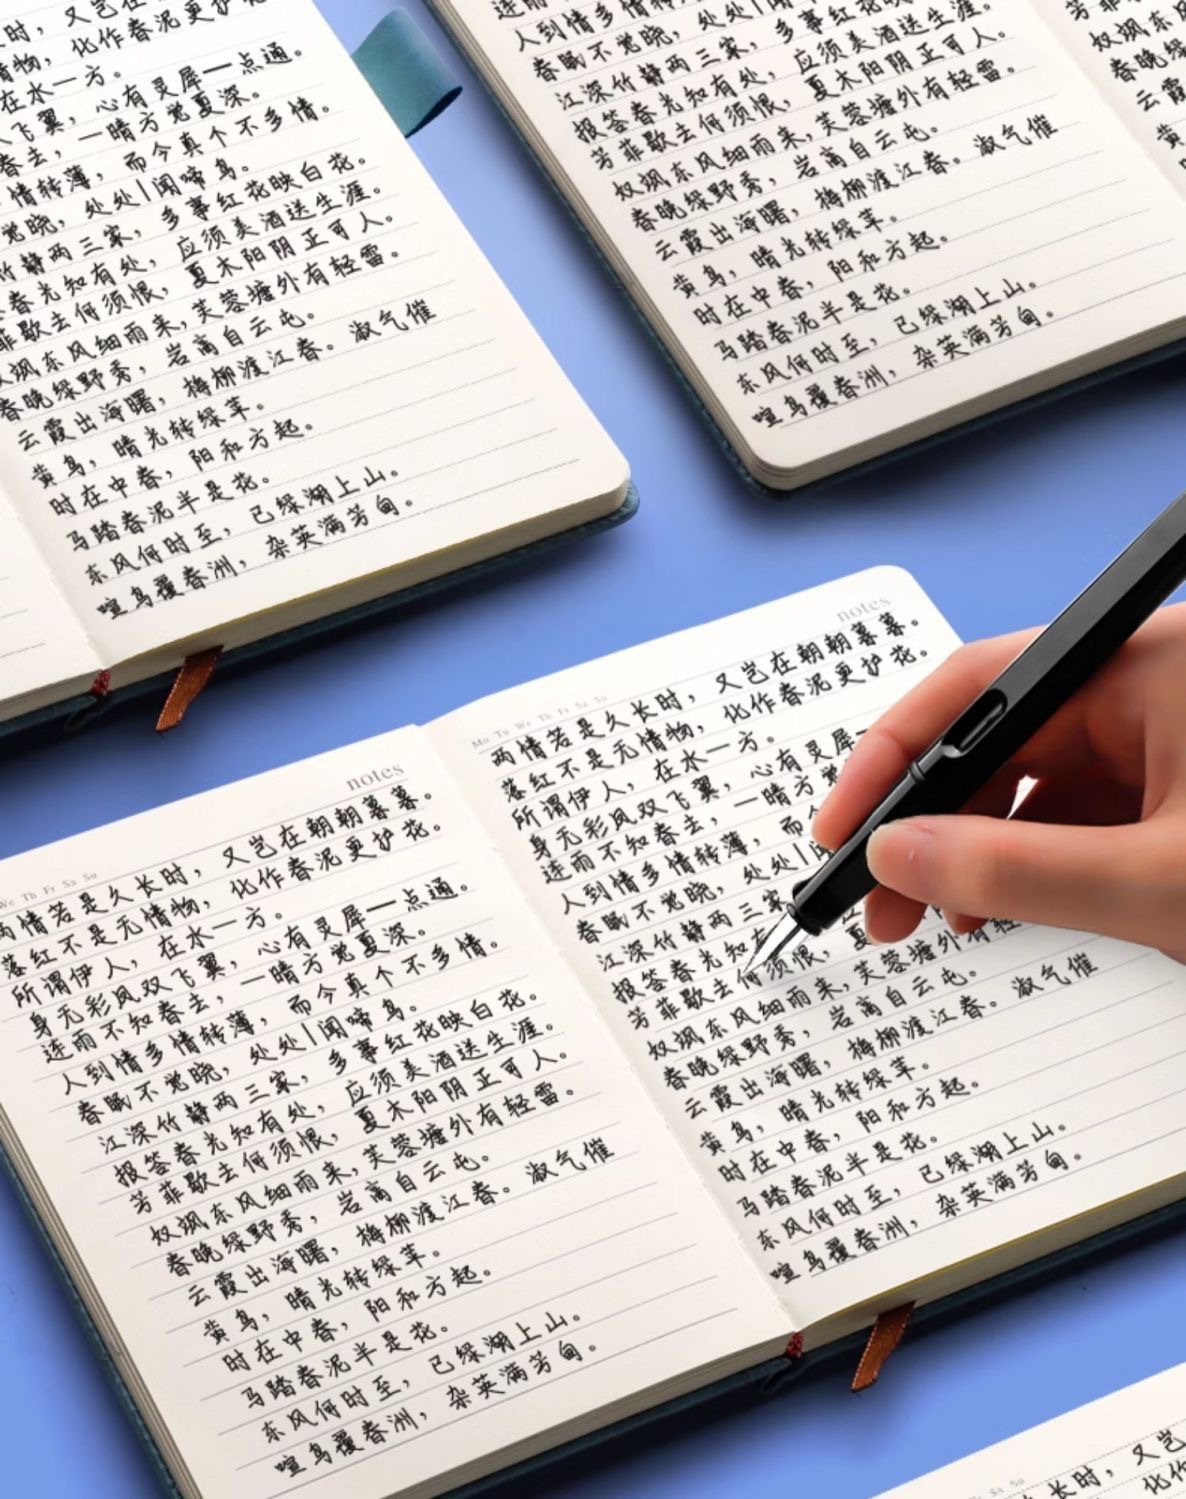 时，又岂在
情物，化作春泥更护花
在水一方。
飞翼，心有灵犀一点通。
春去，一晴方觉夏深。
情转薄，而今真个不多情。
觉晓，处处|闻啼鸟。
竹静两三家，多事红花映白花。
春光知有处，应须美酒送生涯。
菲歇去何须恨，夏木阳阴正可人。
奴飒东风细雨来，芙蓉塘外有轻雷。
春晚绿野秀，岩高自云屯。
云霞出海曙，梅柳渡江春。淑气催
黄鸟，晴光转绿苹。
时在中春，阳和方起。
马踏春泥半是花。
东风何时至，已绿湖上山。
喧鸟覆春洲，杂英满芳甸。
人到情多情转薄
春眠不觉晓，处处|闻啼鸟。
江深竹静两三家，多事红花映白花。
报答春光知有处，应须美酒送生涯。
芳菲歇去何须恨，夏木阳阴正可人。
奴飒东风细雨来，芙蓉塘外有轻雷。
春晚绿野秀，岩高自云屯。
云霞出海曙，梅柳渡江春。淑气催
黄鸟，晴光转绿苹。
时在中春，阳和方起。
马踏春泥半是花。
东风何时至，已绿湖上山。
喧鸟覆春洲，杂英满芳甸。
芳菲
奴飒东
春晚绿
云霞
黄
notes
We Th Fr Sa Su
两情若是久长时，又岂在朝朝暮暮。
落红不是无情物，化作春泥更护花。
所谓伊人，在水一方。
身无彩凤双飞翼，心有灵犀一点通。
连雨不知春去，一晴方觉夏深。
人到情多情转薄，而今真个不多情。
春眠不觉晓，处处|闻啼鸟。
江深竹静两三家，多事红花映白花。
报答春光知有处，应须美酒送生涯。
芳菲歇去何须恨，夏木阳阴正可人。
奴飒东风细雨来，芙蓉塘外有轻雷。
春晚绿野秀，岩高自云屯。
云霞出海曙，梅柳渡江春。淑气催
黄鸟，晴光转绿苹。
时在中春，阳和方起。
马踏春泥半是花。
东风何时至，已绿湖上山。
喧鸟覆春洲，杂英满芳甸。
notes
Mo Tu We Th Fr Sa Su
两情若是久长时，又岂在朝朝暮暮。
落红不是无情物，化作春泥更护花。
所谓伊人，在水一方。
身无彩凤双飞翼，心有灵犀一
连雨不知春去，一晴方觉
人到情多情转薄，而
春眠不觉晓，处处|闻
江深竹静两三家
报答春光知有
芳菲歇去何须恨，夏
奴飒东风细雨来，芙蓉塘外有轻
春晚绿野秀，岩高自云屯。
云霞出海曙，梅柳渡江春。淑气催
黄鸟，晴光转绿苹。
时在中春，阳和方起。
马踏春泥半是花。
东风何时至，已绿湖上山。
喧鸟覆春洲，杂英满芳甸。
Sa Su
长时，又岂
化作